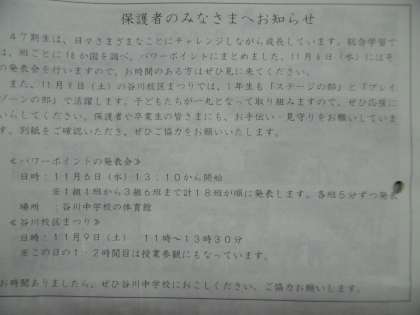 保護者のみなさまへお知らせ
47期生は、日々さまざまなことにチャレンジしながら成長しています。総合学習で
は、班ごとに18か国を調べ、パワーポイントにまとめました。11月6日(水)にはそ
の発表会を行いますので、お時間のある方はぜひ見に来てください。
また、11月9日(土)の谷川校区まつりでは、1年生も「ステージの部」と「プレイ
ゾーンの部」で活躍します。子どもたちが一丸となって取り組みますので、ぜひ応援に
いらしてください。保護者や卒業生の皆さまにも、お手伝い・見守りをお願いしていま
す。別紙をご確認いただき、ぜひご協力をお願いいたします。
≪パワーポイントの発表会≫
日時:11月6日(水)13:10から開始
※1組1班から3組6班まで計18班が順に発表します。各班5分ずつ発表
場所 :谷川中学校の体育館
≪谷川校区まつり≫
日時:11月9日(土) 11時～13時30分
※この日の1・2時間目は授業参観にもなっています。
お時間ありましたら、ぜひ谷川中学校におこしください。ご協力お願いします。